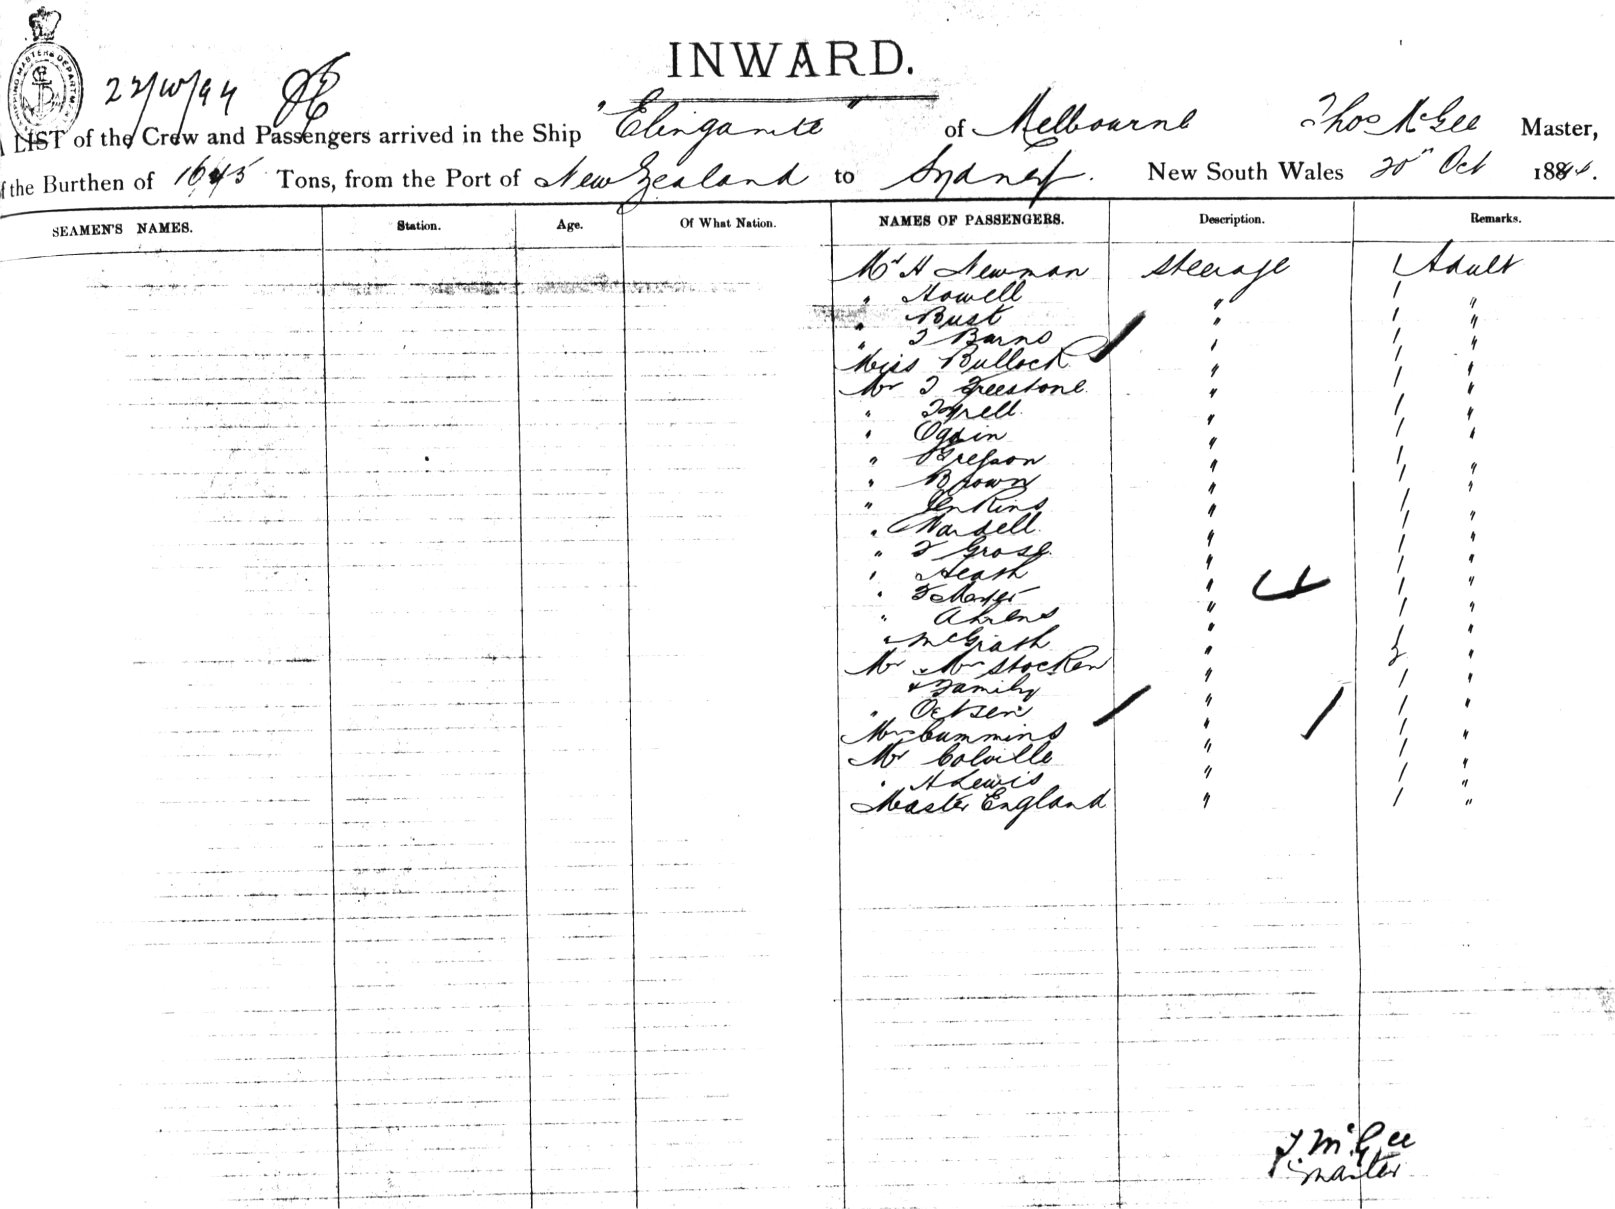 INWARD.
22/10/94
A LIST of the Crew and Passengers arrived in the Ship "Elingamite" of Melbourne Thos McGee Master,
of the Burthen of 1675 Tons, from the Port of New Zealand to Sydney. New South Wales 20" Oct 1894.
SEAMEN'S NAMES. Station. Age. Of What Nation. NAMES OF PASSENGERS. Description. Remarks.
Mr H Newman Steerage 1 Adult
" Howell " 1 "
" Bust " 1 "
" J Barns " 1 "
Miss Bullock " 1 "
Mr J Freestone " 1 "
" Tyrell " 1 "
" " 1 "
" " 1 "
" Brown " 1 "
" Jenkins " 1 "
" Wardell " 1 "
" J Grose " 1 "
" Heath " 1 "
" J " 1 "
" Ahrens " 1 "
" McGrath " 1 "
Mr & Mrs Stocken " 2 "
& Family " 1 "
" " 1 "
Mrs Cummins " 1 "
Mr Colville " 1 "
" H Lewis " 1 "
Master England " 1 "
T. McGee
Master